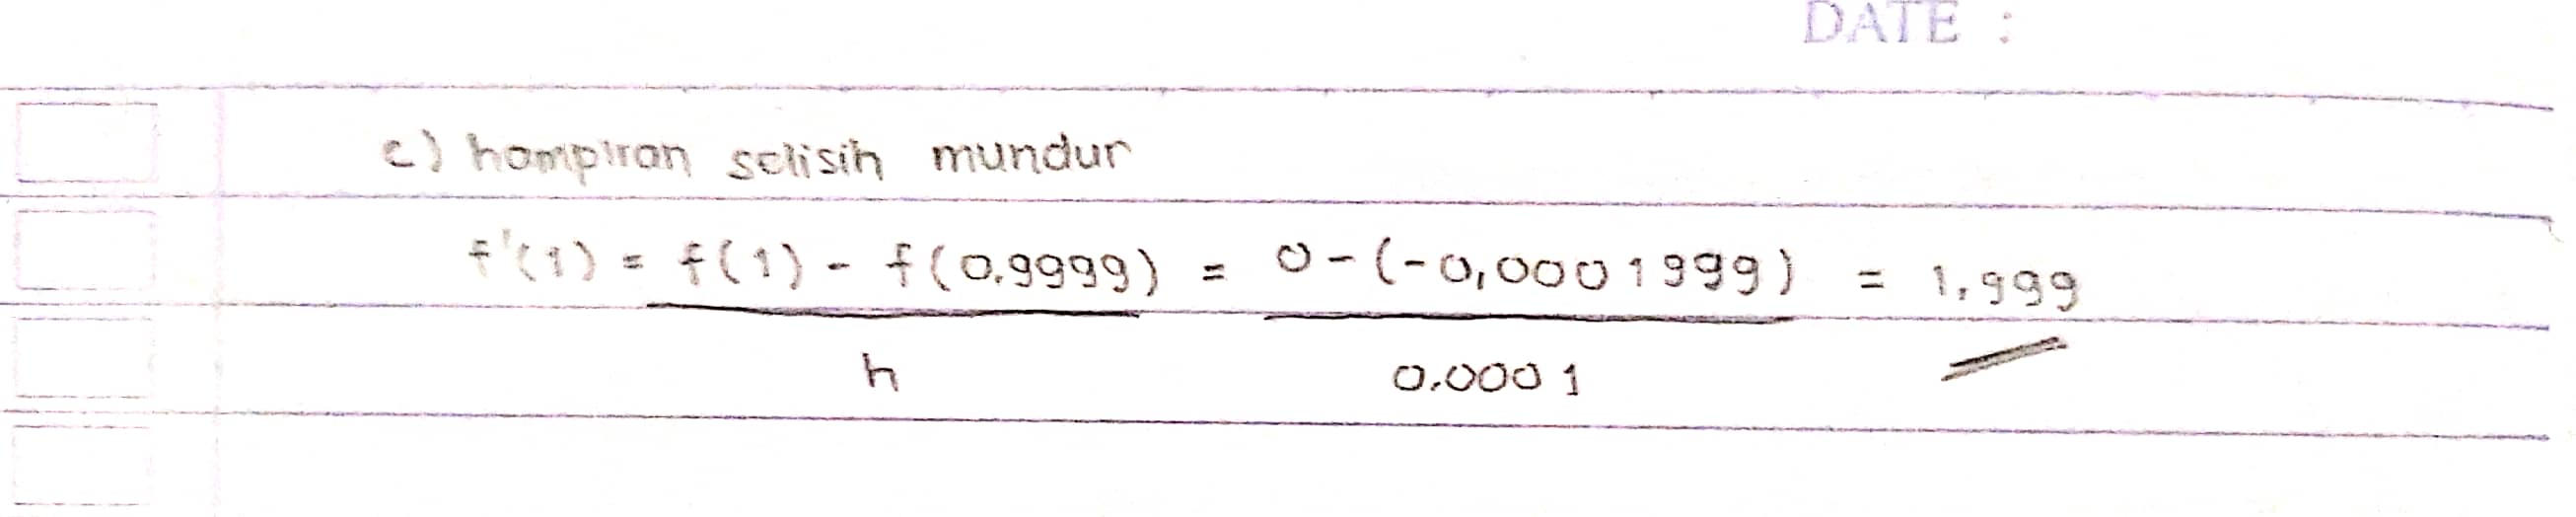 DATE :
c) hampiran selisih mundur
f'(1) = f(1) - f(0.9999) = 0-(-0,0001999) = 1,999
h 0.0001